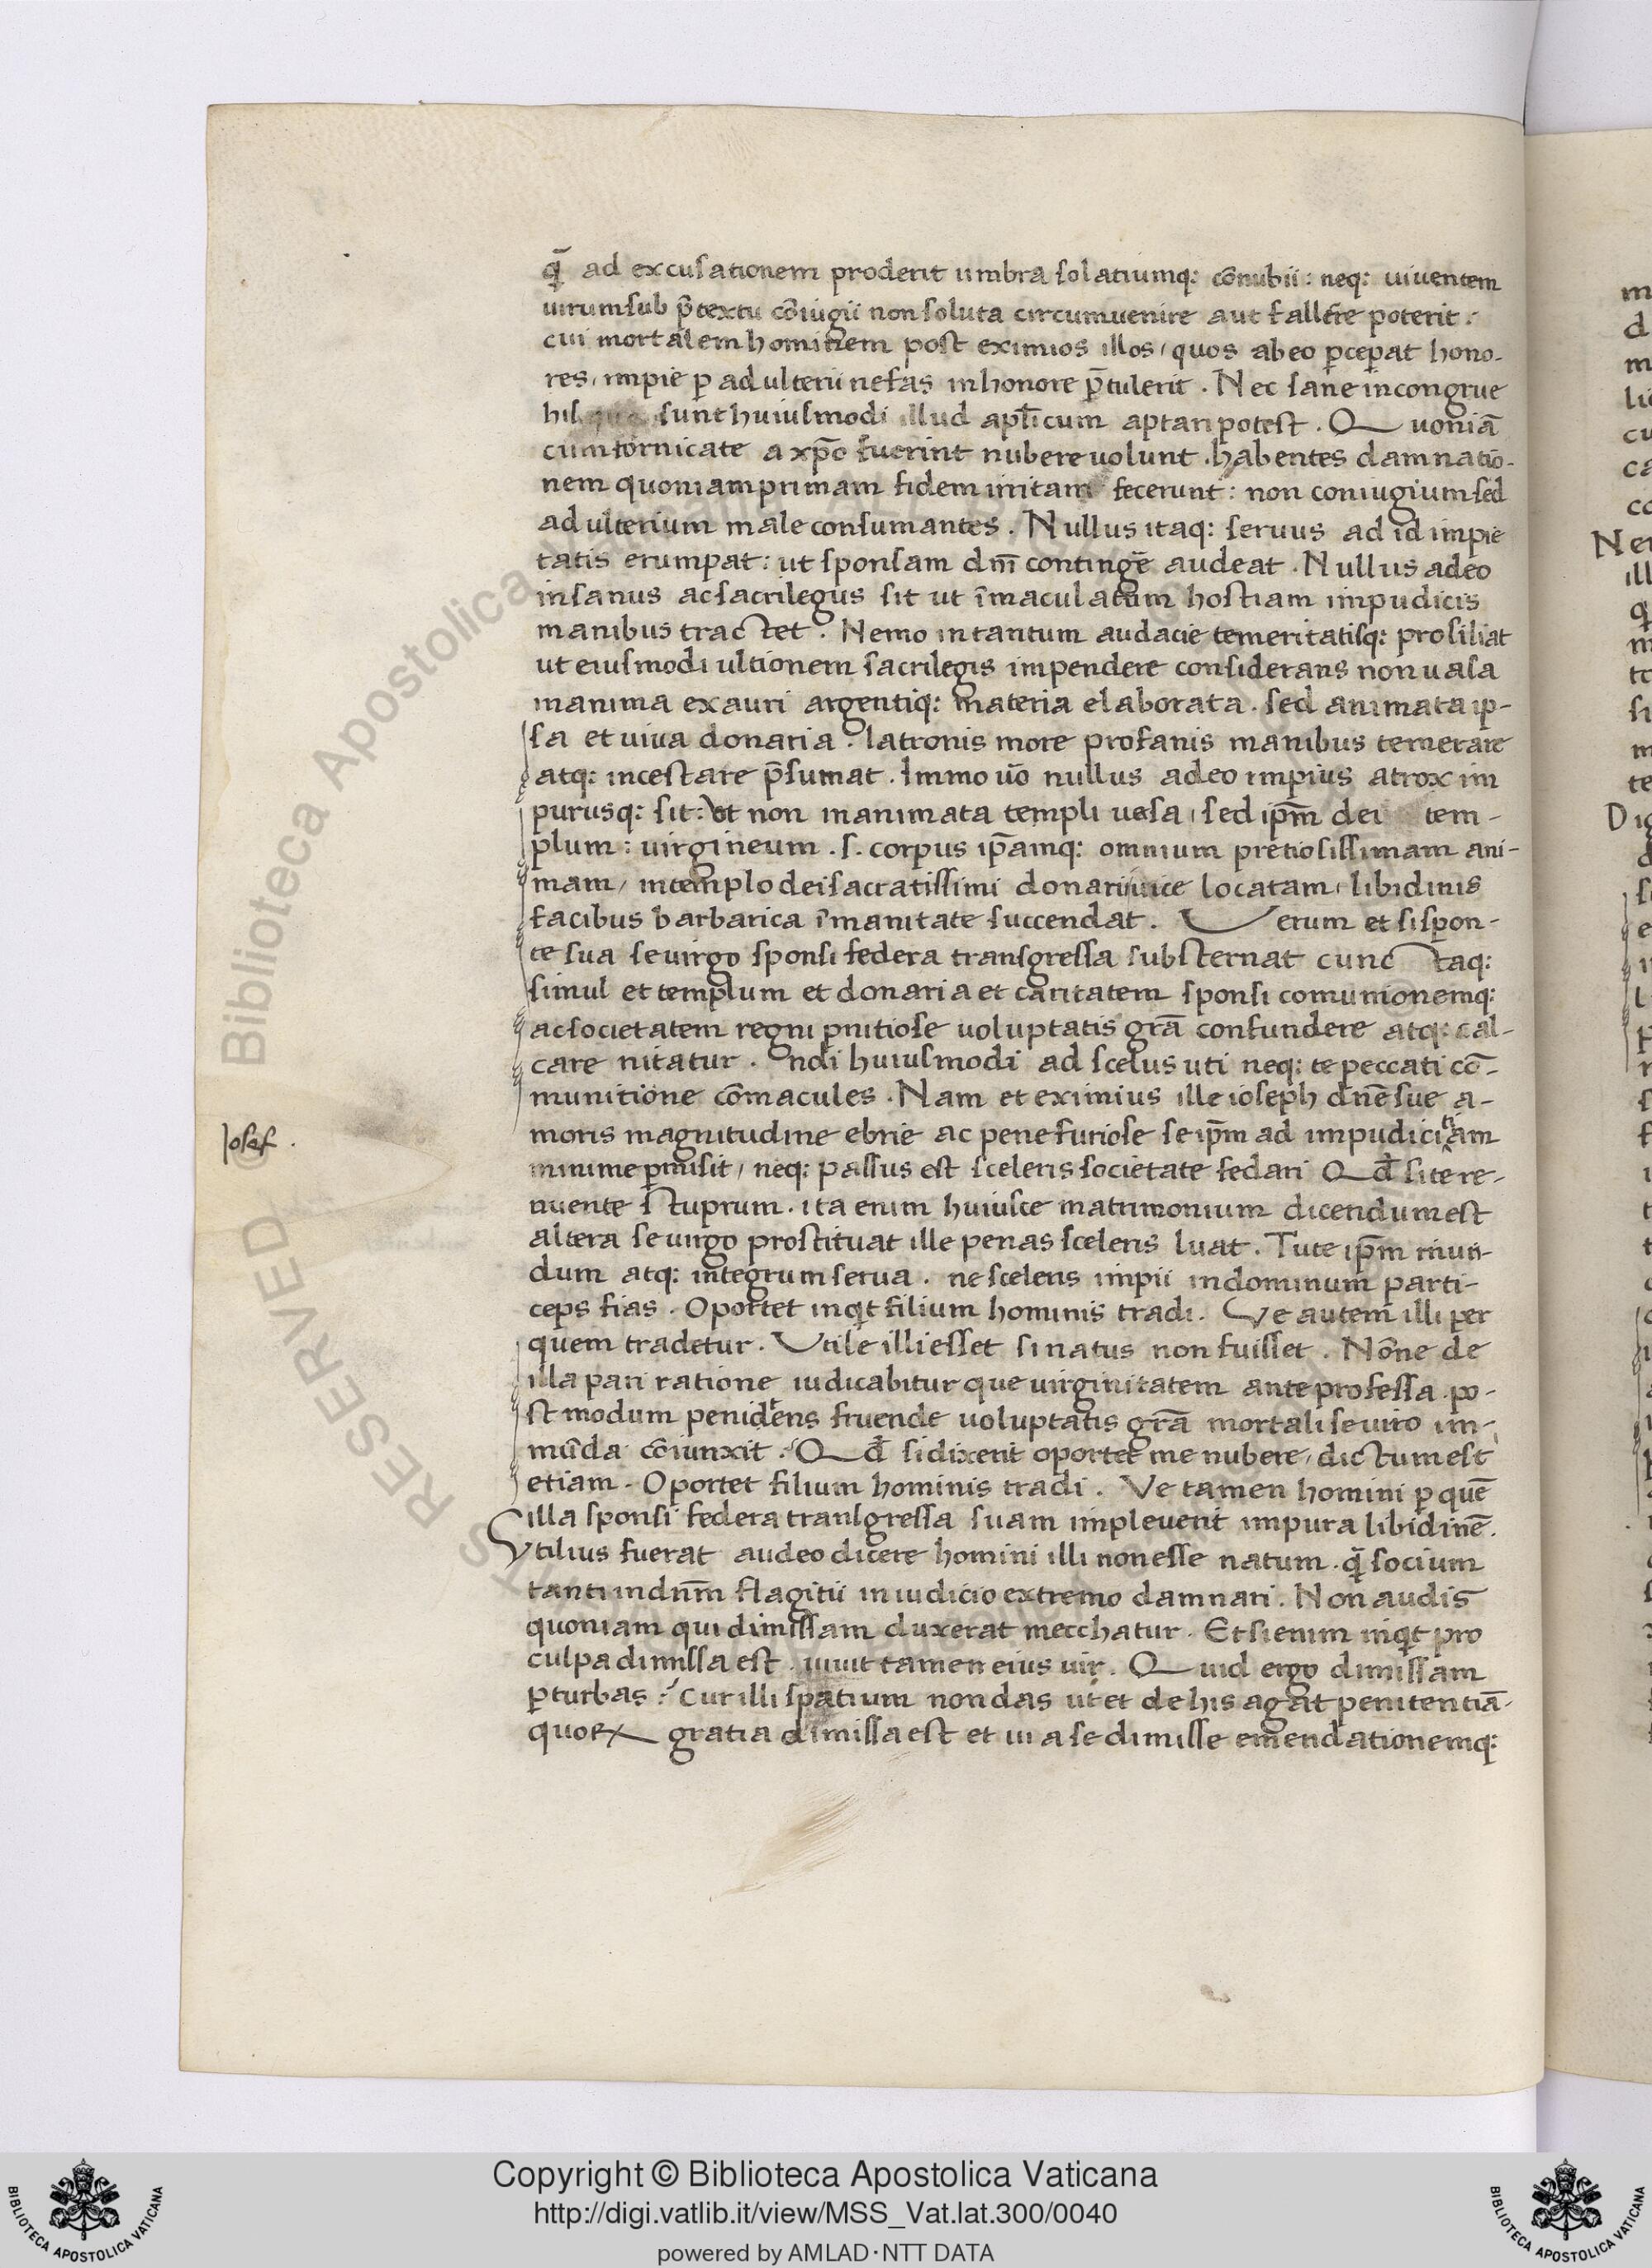 qm̄ ad excusationem proderit umbra solatiumq: cōnubii: neq: uiuentem
uirum sub p̄textu cōiugii non soluta circumuenire aut fallere poterit:
cui mortalem hominem post eximios illos, quos ab eo p̱cep̱at hono-
res, impie p̱ adulterii nefas in honore p̄tulerit. Nec sane incongrue
his sunt huiusmodi illud apl̄icum aptari potest. Quoniā
cum fornicate a xp̄o fuerint nubere uolunt. habentes damnatio-
nem quoniam primam fidem irritam fecerunt: non coniugium sed
adulterium male consumantes. Nullus itaq: seruus ad id impie
tatis erumpat: ut sponsam dn̄i contingē audeat. Nullus adeo
insanus ac sacrilegus sit ut īmaculatam hostiam impudicis
manibus tractet. Nemo in tantum audacie temeritatisq: prosiliat
ut eiusmodi ultionem sacrilegis impendere considerans non uasa
inanima ex auri argentiq: materia elaborata. sed animata ip-
sa et uiua donaria. latronis more profanis manibus temerare
atq: incestare p̄sumat. Immo uo̅ nullus adeo impius atrox im
purusq: sit: ut non inanimata templi uasa, sed ip̄m dei tem-
plum: uirgineum .s. corpus ip̄amq: omnium pretiosissimam ani-
mam, in templo dei sacratissimi donarii uice locatam, libidinis
facibus barbarica īmanitate succendat. Verum et si spon-
te sua se uirgo sponsi federa transgressa substernat cunctaq:
simul et templum et donaria et caritatem sponsi comunionemq:
ac societatem regni p̱nitiose uoluptatis grā confundere atq: cal-
care nitatur. ndi huiusmodi ad scelus uti neq: te peccati cō-
munitione cōmacules. Nam et eximius ille ioseph dn̄e sue a-
moris magnitudine ebrie ac pene furiose se ip̄m ad impudicitiam
minime p̱misit, neq: passus est sceleris societate fedari Qd̄ si te re-
nuente stuprum. ita enim huiusce matrimonium dicendum est
altera se uirgo prostituat ille penas sceleris luat. Tute ip̄m mun-
dum atq: integrum serua. ne sceleris impii in dominum parti-
ceps fias. Oportet inqt filium hominis tradi. Ve autem illi per
quem tradetur. Vtile illi esset si natus non fuisset. Nōne de
illa pari ratione iudicabitur que uirginitatem ante professa. po-
st modum penidens fruende uoluptatis grā mortali se uiro im-
mūda cōiunxit. Qd̄ si dixerit oportet me nubere, dictum est
etiam. Oportet filium hominis tradi. Ve tamen homini p̱ quē
illa sponsi federa transgressa suam impleuerit impura libidinē.
Vtilius fuerat audeo dicere homini illi non esse natum. qm̄ socium
tanti in dn̄m flagitii in iudicio extremo damnari. Non audis
quoniam qui dimissam duxerat mecchatur. Et si enim inqt pro
culpa dimissa est. uiuit tamen eius uir. Quid ergo dimissam
p̱turbas? Cur illi spatium non das ut et de his agat penitentiā.
quoꝝ gratia dimissa est et ui a se dimisse emendationemq:
Iosef.
Copyright © Biblioteca Apostolica Vaticana
http://digi.vatlib.it/view/MSS_Vat.lat.300/0040
powered by AMLAD·NTT DATA
BIBLIOTECA APOSTOLICA VATICANA
BIBLIOTECA APOSTOLICA VATICANA